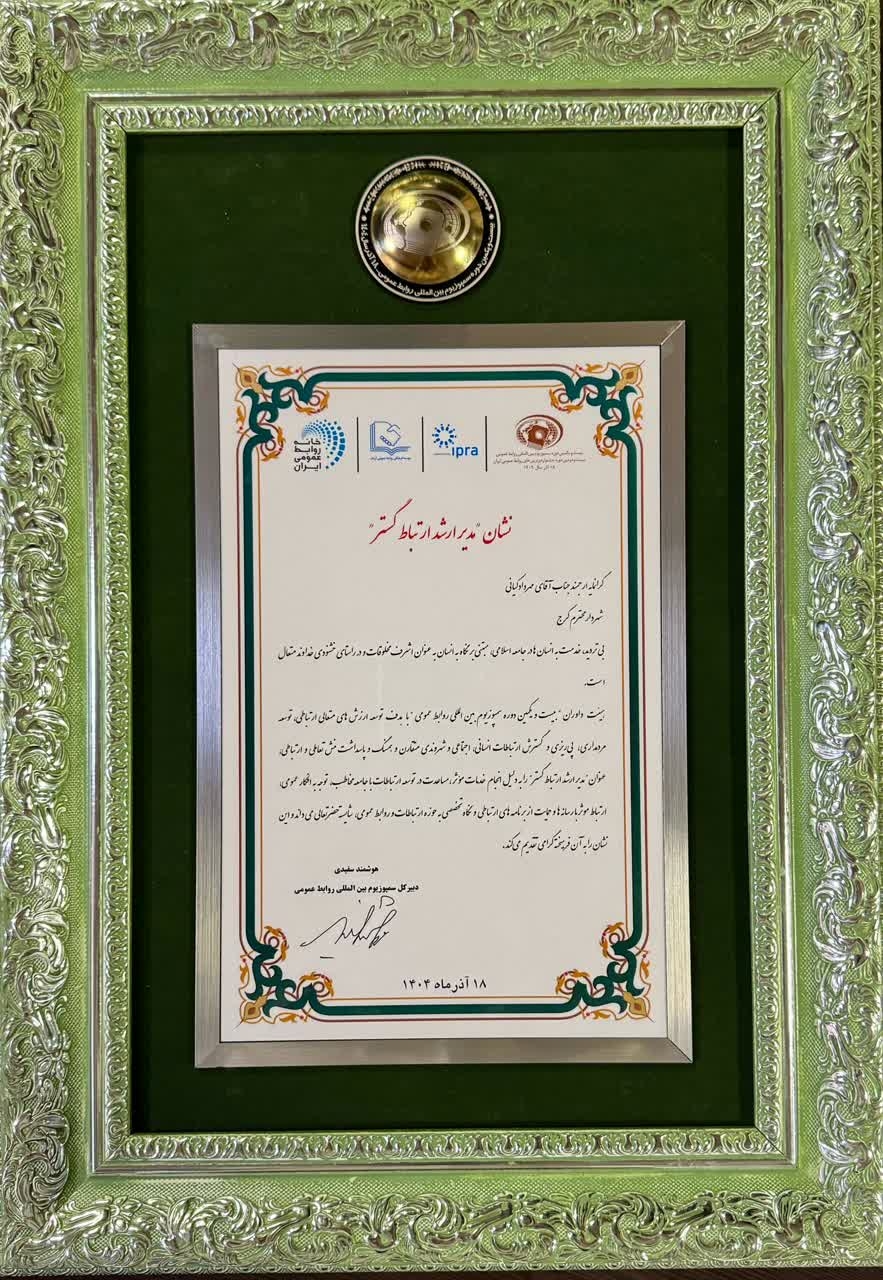 بیست و یکمین دوره سمپوزیوم بین المللی روابط عمومی
خانه
روابط
عمومی
ایران
ipra
بیست و یکمین دوره سمپوزیوم بین المللی روابط عمومی
۱۸ آذر سال ۱۴۰۴
نشان "مدیر ارشد ارتباط گستر"
گرانمایه ارجمند جناب آقای مهرداد کیانی
شهردار محترم کرج
بی تردید، خدمت به انسان ها در جامعه اسلامی، مبتنی بر نگاه به انسان به عنوان اشرف مخلوقات و در راستای خشنودی خداوند متعال
است.
هیئت داوران "بیست و یکمین دوره سمپوزیوم بین المللی روابط عمومی" با هدف توسعه ارزش های متعالی ارتباطی، توسعه
مردمداری، پی‌ریزی و گسترش ارتباطات انسانی، اجتماعی و شهروندی متقارن و همسنگ و پاسداشت منش تعاملی و ارتباطی،
عنوان "مدیر ارشد ارتباط گستر" را به دلیل انجام خدمات موثر، مساعدت در توسعه ارتباطات با جامعه مخاطب، توجه به افکار عمومی،
ارتباط موثر با رسانه ها و حمایت از برنامه های ارتباطی و نگاه تخصصی به حوزه ارتباطات و روابط عمومی، شایسته حضرتعالی می داند و این
نشان را به آن فرهیخته گرامی تقدیم می کند.
هوشمند سفیدی
دبیرکل سمپوزیوم بین المللی روابط عمومی
۱۸ آذر ماه ۱۴۰۴